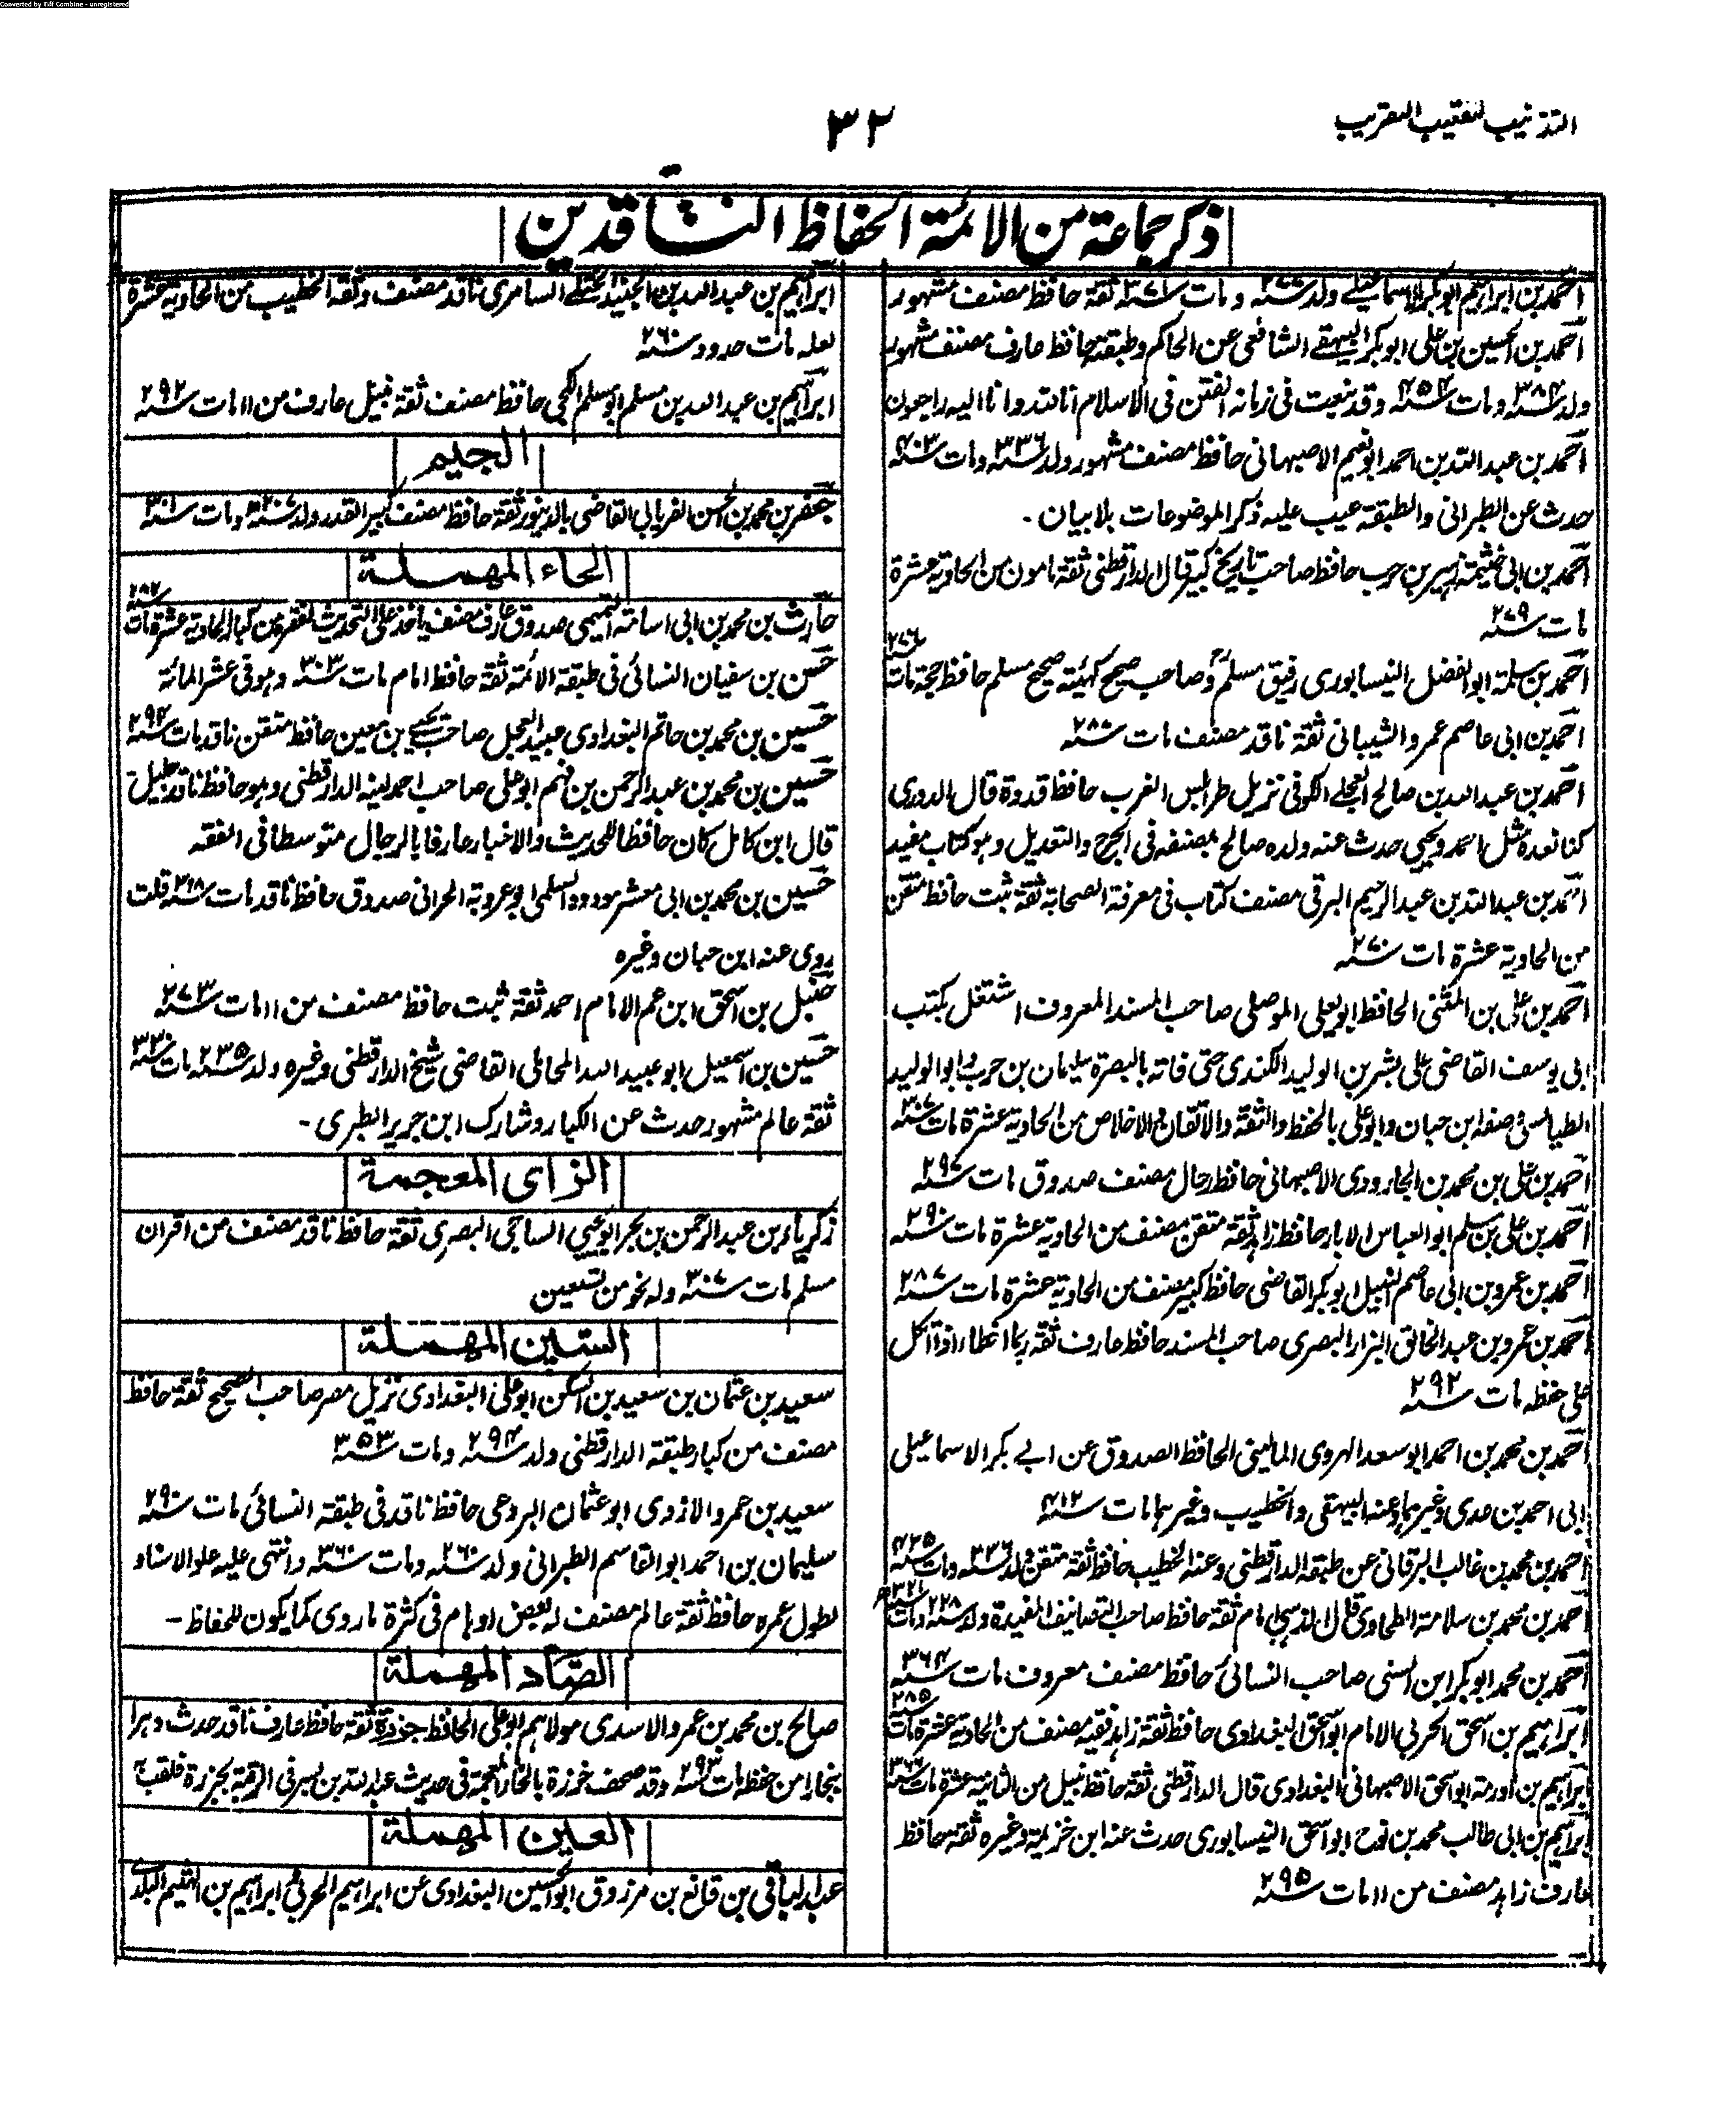 Converted by Tiff Combine - unregistered
التذنيب لتعقيب التقريب
٣٢
ذكر جماعة من الائمة الحفاظ الناقدين
احمد بن ابراهيم ابو بكر الاسماعيلي ولد سنة ٢٧٧ ومات سنة ٣٧١ ثقة حافظ مصنف مشهور
احمد بن الحسين بن علي ابو بكر البيهقي الشافعي عن الحاكم وطبقته حافظ عارف مصنف مشهور
ولد سنة ٣٨٤ ومات سنة ٤٥٨ وقد نبعت في زمانه الفتن في الاسلام انا لله وانا اليه راجعون
احمد بن عبد الله بن احمد ابو نعيم الاصبهاني حافظ مصنف مشهور ولد سنة ٣٣٦ ومات سنة ٤٠٣
حدث عن الطبراني والطبقة عيب عليه ذكر الموضوعات بلا بيان .
احمد بن ابي خثيمة زهير بن حرب حافظ صاحب تاريخ كبير قال الدارقطني ثقة مامون من الحادية عشرة
مات سنة ٢٧٩
احمد بن سلمة ابو الفضل النيسابوري رفيق مسلم وصاحب صحيح كهيئة صحيح مسلم حافظ حجة مات سنة ٢٨٦
احمد بن ابي عاصم عمرو الشيباني ثقة ناقد مصنف مات سنة ٢٨٧
احمد بن عبد الله بن صالح العجلي الكوفي نزيل طرابلس الغرب حافظ قدوة قال الدوري
كنا نعده مثل احمد ويحيى حدث عنه ولده صالح بمصنفه في الجرح والتعديل وهو كتاب مفيد
احمد بن عبد الله بن عبد الرحيم البرقي مصنف كتاب في معرفة الصحابة ثقة ثبت حافظ متقن
من الحادية عشرة مات سنة ٢٧٠
احمد بن علي بن المثنى الحافظ ابو يعلى الموصلي صاحب المسند المعروف اشتغل بكتب
ابي يوسف القاضي على بشر بن الوليد الكندي حتى فاته بالبصرة سليمان بن حرب وابو الوليد
الطيالسي وصفه ابن حبان وابو علي بالحفظ والثقة والاتقان والاخلاص من الحادية عشرة مات سنة ٣٠٧
احمد بن علي بن محمد بن الجارودي الاصبهاني حافظ رحال مصنف صدوق مات سنة ٢٩٧
احمد بن علي بن مسلم ابو العباس الابار حافظ زاهد ثقة متقن مصنف من الحادية عشرة مات سنة ٢٩٠
احمد بن عمرو بن ابي عاصم النبيل ابو بكر القاضي حافظ كبير مصنف من الحادية عشرة مات سنة ٢٨٧
احمد بن عمرو بن عبد الخالق البزار البصري صاحب المسند حافظ عارف ثقة ربما اخطا اذا اتكل
على حفظه مات سنة ٢٩٢
احمد بن محمد بن احمد ابو سعد الهروي الماليني الحافظ الصدوق عن ابي بكر الاسماعيلي
ابي احمد بن عدي وغيرهما وعنه البيهقي والخطيب وغيرهما مات سنة ٤١٢
احمد بن محمد بن غالب البرقاني عن طبقة الدارقطني وعنه الخطيب حافظ ثقة متقن ولد سنة ٣٣٦ ومات سنة ٤٢٥
احمد بن محمد بن سلامة الطحاوي قال الذهبي امام ثقة حافظ صاحب التصانيف المفيدة ولد سنة ٢٢٨ ومات سنة ٣٢١
احمد بن محمد ابو بكر ابن السني صاحب النسائي حافظ مصنف معروف مات سنة ٣٦٤
ابراهيم بن اسحق الحربي الامام ابو اسحق البغدادي حافظ ثقة زاهد فقيه مصنف من الحادية عشرة مات سنة ٢٨٥
ابراهيم بن اورمة ابو اسحق الاصبهاني البغدادي قال الدارقطني ثقة حافظ نبيل من الثانية عشرة مات سنة
ابراهيم بن ابي طالب محمد بن نوح ابو اسحق النيسابوري حدث عنه ابن خزيمة وغيره ثقة حافظ
عارف زاهد مصنف من ١١ مات سنة ٢٩٥
ابراهيم بن عبد الله بن الجنيد الختلي السامري ناقد مصنف وثقه الخطيب من الحادية عشرة
لعله مات حدود سنة ٢٦٠
ابراهيم بن عبد الله بن مسلم ابو مسلم الكجي حافظ مصنف ثقة نبيل عارف من ١١ مات سنة ٢٩٢
الجيم
جعفر بن محمد بن الحسن الفريابي القاضي بالدينور ثقة حافظ مصنف كبير القدر ولد سنة ٢٠٧ ومات سنة ٣٠١
الحاء المهملة
حارث بن محمد بن ابي اسامة التميمي صدوق عارف مصنف ياخذ على التحديث لفقره من كبار الحادية عشرة مات سنة ٢٨٢
حسن بن سفيان النسائي في طبقة الائمة ثقة حافظ امام مات سنة ٣٠٣ وهو في عشر المائة
حسين بن محمد بن حاتم البغدادي عبيد العجل صاحب يحيى بن معين حافظ متقن ناقد مات سنة ٢٩٤
حسين بن محمد بن عبد الرحمن بن فهم ابو علي صاحب احمد لينه الدارقطني وهو حافظ ناقد جليل
قال ابن كامل كان حافظا للحديث والاخبار عارفا بالرجال متوسطا في الفقه
حسين بن محمد بن ابي معشر مودود السلمي ابو عروبة الحراني صدوق حافظ ناقد مات سنة ٣١٨ قلت
روى عنه ابن حبان وغيره
حنبل بن اسحق ابن عم الامام احمد ثقة ثبت حافظ مصنف من ١١ مات سنة ٢٧٣
حسين بن اسمعيل ابو عبيد الله المحاملي القاضي شيخ الدارقطني وغيره ولد سنة ٢٣٥ مات سنة ٣٣٠
ثقة عالم مشهور حدث عن الكبار وشارك ابن جرير الطبري -
الزاى المعجمة
زكريا بن عبد الرحمن بن بحر ابو يحيى الساجي البصري ثقة حافظ ناقد مصنف من اقران
مسلم مات سنة ٣٠٧ وله نحو من تسعين
السين المهملة
سعيد بن عثمان بن سعيد بن السكن ابو علي البغدادي نزيل مصر صاحب الصحيح ثقة حافظ
مصنف من كبار طبقة الدارقطني ولد سنة ٢٩٤ ومات سنة ٣٥٣
سعيد بن عمرو الازدي ابو عثمان البردعي حافظ ناقد في طبقة النسائي مات سنة ٢٩٠
سليمان بن احمد ابو القاسم الطبراني ولد سنة ٢٦٠ ومات سنة ٣٦٠ وانتهى عليه علو الاسناد
لطول عمره حافظ ثقة عالم مصنف له بعض اوهام في كثرة ما روى كما يكون للحفاظ -
الصاد المهملة
صالح بن محمد بن عمرو الاسدي مولاهم ابو علي الحافظ جزرة ثقة حافظ عارف ناقد حدث دهرا
بخارا من حفظه مات سنة ٢٩٣ وقد صحف خرزة بالخاء المعجمة في حديث عبد الله بن بسر في الرقية بجزرة فلقب به
العين المهملة
عبد الباقي بن قانع بن مرزوق ابو الحسين البغدادي عن ابراهيم الحربي وابراهيم بن الهيثم البلدي